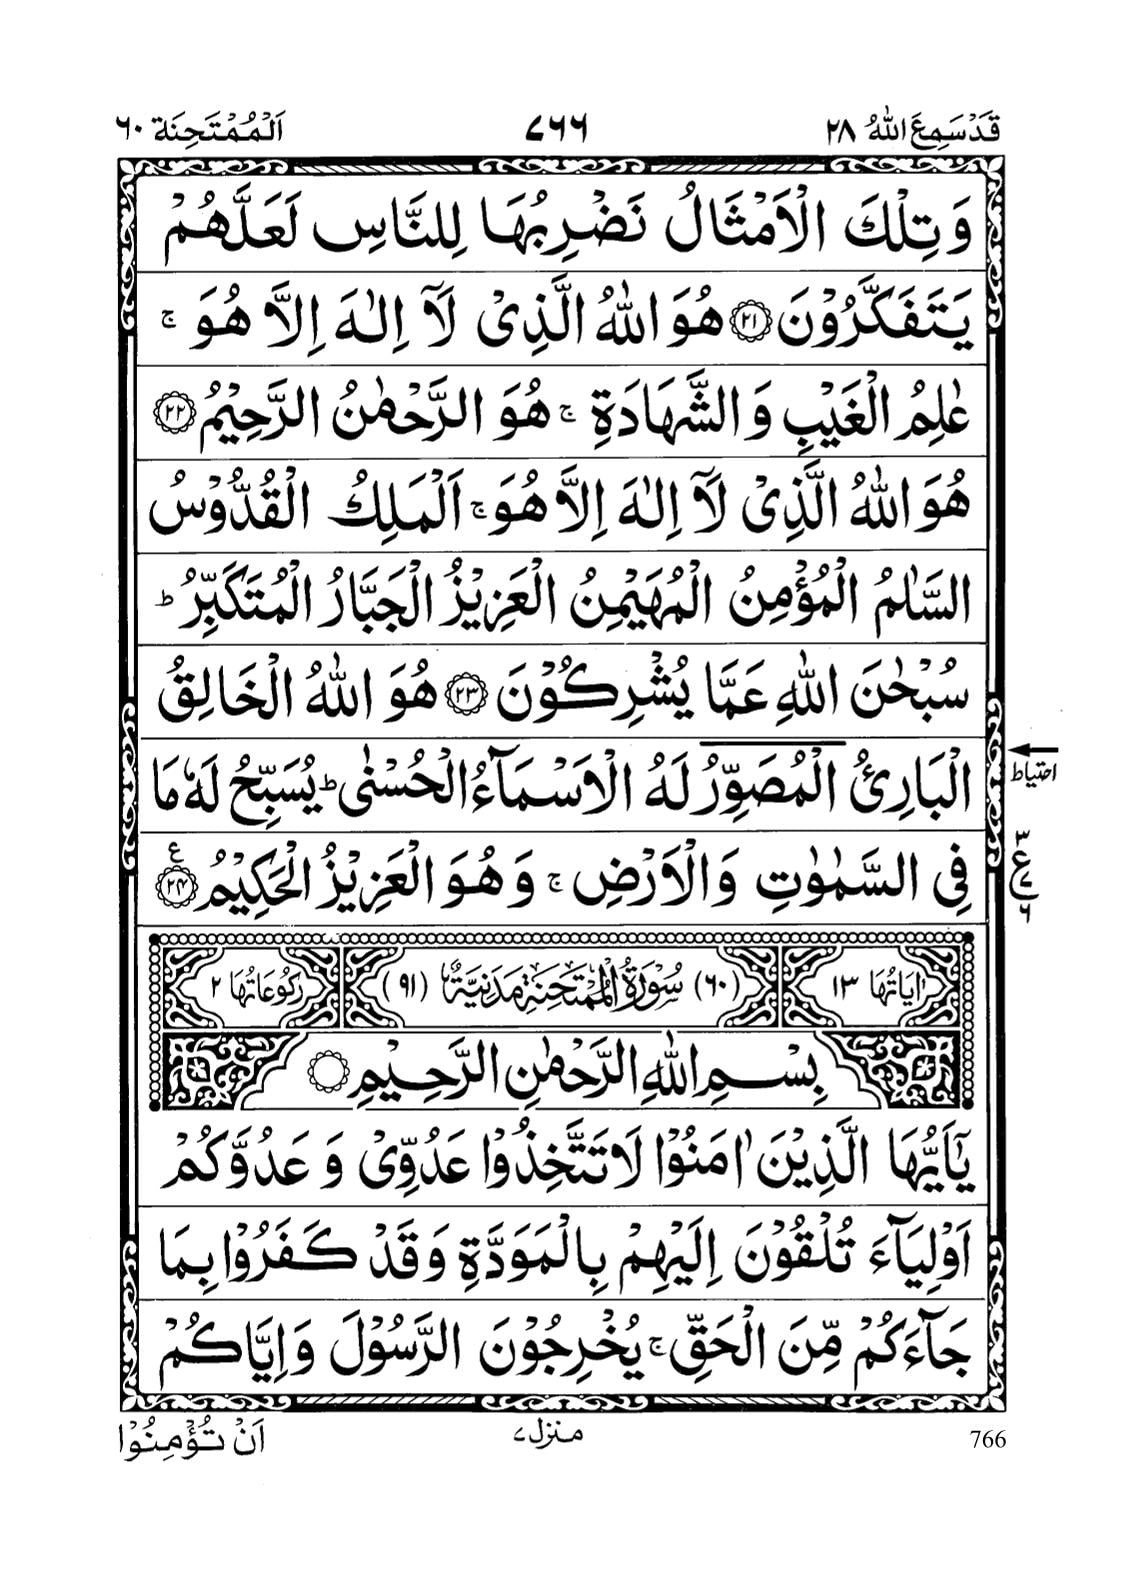 قَدْ سَمِعَ اللهُ ۲۸ ۷۶۶ اَلْمُمْتَحِنَة ۶۰
وَ تِلْكَ الْاَمْثَالُ نَضْرِبُهَا لِلنَّاسِ لَعَلَّهُمْ
يَتَفَكَّرُوْنَ ﴿۲۱﴾ هُوَ اللهُ الَّذِىْ لَآ اِلٰهَ اِلَّا هُوَ ۚ
عٰلِمُ الْغَيْبِ وَ الشَّهَادَةِ ۚ هُوَ الرَّحْمٰنُ الرَّحِيْمُ ﴿۲۲﴾
هُوَ اللهُ الَّذِىْ لَآ اِلٰهَ اِلَّا هُوَ ۚ اَلْمَلِكُ الْقُدُّوْسُ
السَّلٰمُ الْمُؤْمِنُ الْمُهَيْمِنُ الْعَزِيْزُ الْجَبَّارُ الْمُتَكَبِّرُ ؕ
سُبْحٰنَ اللهِ عَمَّا يُشْرِكُوْنَ ﴿۲۳﴾ هُوَ اللهُ الْخَالِقُ
الْبَارِئُ الْمُصَوِّرُ لَهُ الْاَسْمَآءُ الْحُسْنٰى ؕ يُسَبِّحُ لَهٗ مَا
احتیاط
فِى السَّمٰوٰتِ وَ الْاَرْضِ ۚ وَ هُوَ الْعَزِيْزُ الْحَكِيْمُ ﴿۲۴﴾ ع
۳ ع ۷ ۶
اٰيَاتُهَا ۱۳ (۶۰) سُوْرَةُ الْمُمْتَحِنَةِ مَدَنِيَّةٌ (۹۱) رُكُوْعَاتُهَا ۲
بِسْمِ اللهِ الرَّحْمٰنِ الرَّحِيْمِ
يٰٓاَيُّهَا الَّذِيْنَ اٰمَنُوْا لَا تَتَّخِذُوْا عَدُوِّىْ وَ عَدُوَّكُمْ
اَوْلِيَآءَ تُلْقُوْنَ اِلَيْهِمْ بِالْمَوَدَّةِ وَ قَدْ كَفَرُوْا بِمَا
جَآءَكُمْ مِّنَ الْحَقِّ ۚ يُخْرِجُوْنَ الرَّسُوْلَ وَ اِيَّاكُمْ
766 منزل ۷ اَنْ تُؤْمِنُوْا